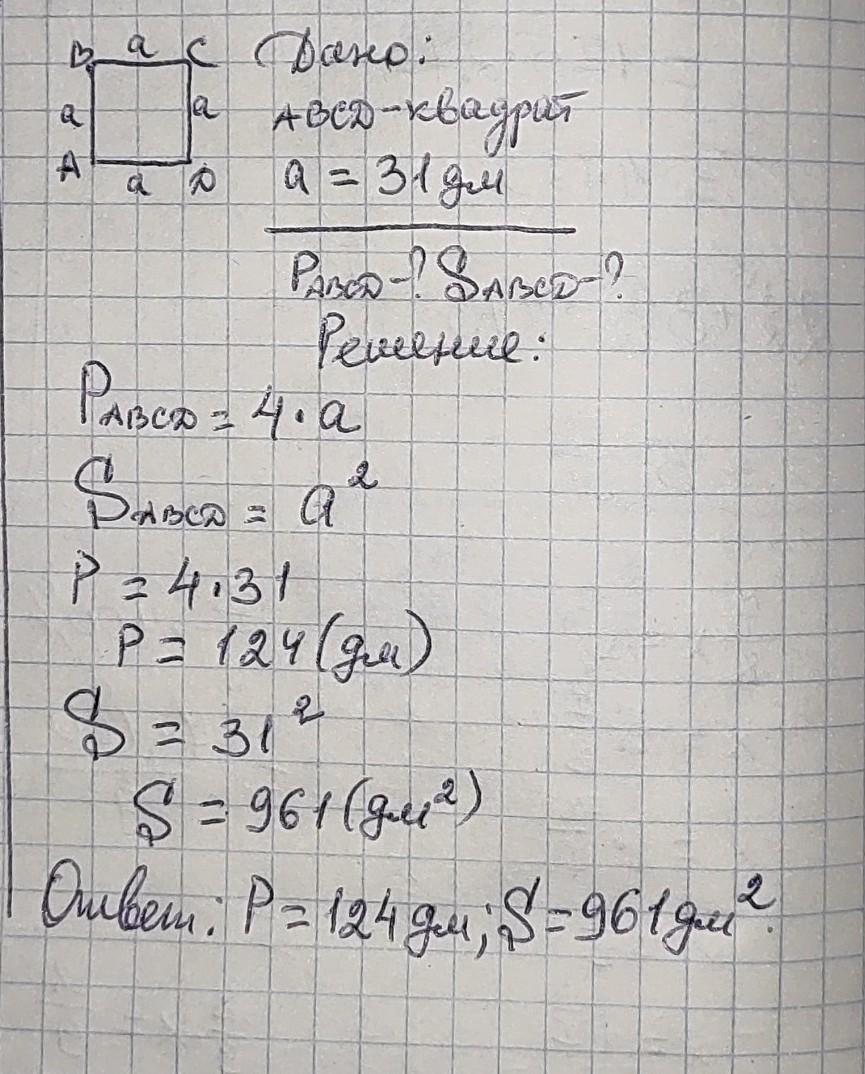 B a C Дано:
a a ABCD-квадрат
A a D a = 31 дм
PABCD-? SABCD-?
Решение:
PABCD = 4·a
SABCD = a²
P = 4·31
P = 124 (дм)
S = 31²
S = 961 (дм²)
Ответ: P = 124 дм; S = 961 дм².